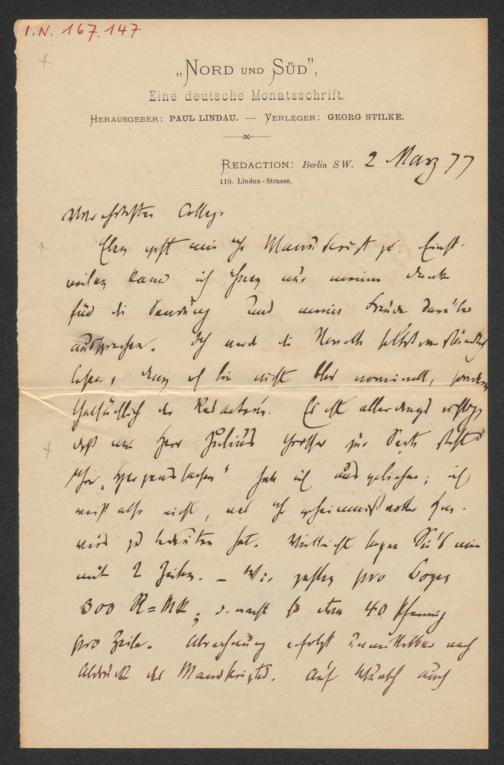 I.N. 167.147
„NORD UND SÜD",
Eine deutsche Monatsschrift.
HERAUSGEBER: PAUL LINDAU. — VERLEGER: GEORG STILKE.
REDACTION: Berlin SW. 2 März 77
110. Linden-Strasse.
Verehrtester College.
Eben geht mir Ihr Manuscript zu. Einst-
weilen kann ich Ihnen nur meinen Dank
für die Sendung und meine Freude darüber
aussprechen. Ich werde die Novelle selbstverständlich
lesen, denn ich bin nicht blos nominell, sondern
thatsächlich der Redacteur. Es ist allerdings richtig,
daß mir Herr Julius Grosser zur Seite steht
Ihr habe ich ; ich
weiß also nicht, was Ihr geheimnißvoller Hin-
weis zu bedeuten hat. Vielleicht sagen Sie's mir
mit 2 Zeilen. — Wir zahlen pro Bogen
300 R=Mk; d. macht so etwa 40 Pfennig
pro Zeile. Abrechnung erfolgt unmittelbar nach
Abdruck des Manuskripts. Auf Wunsch auch